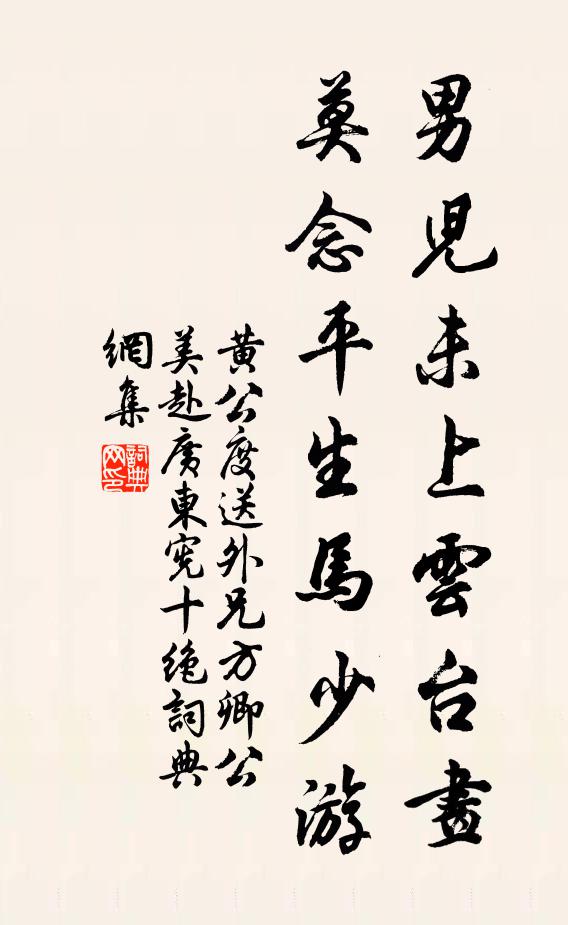 男兒未上雲台畫
莫念平生馬少游
黃公度送外兄方卿公
美赴廣東憲十絶詞典
網集
詞典
网印